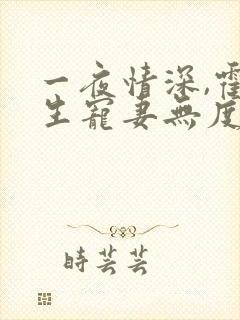 一夜情深,霍
生寵妻無度
時芸芸